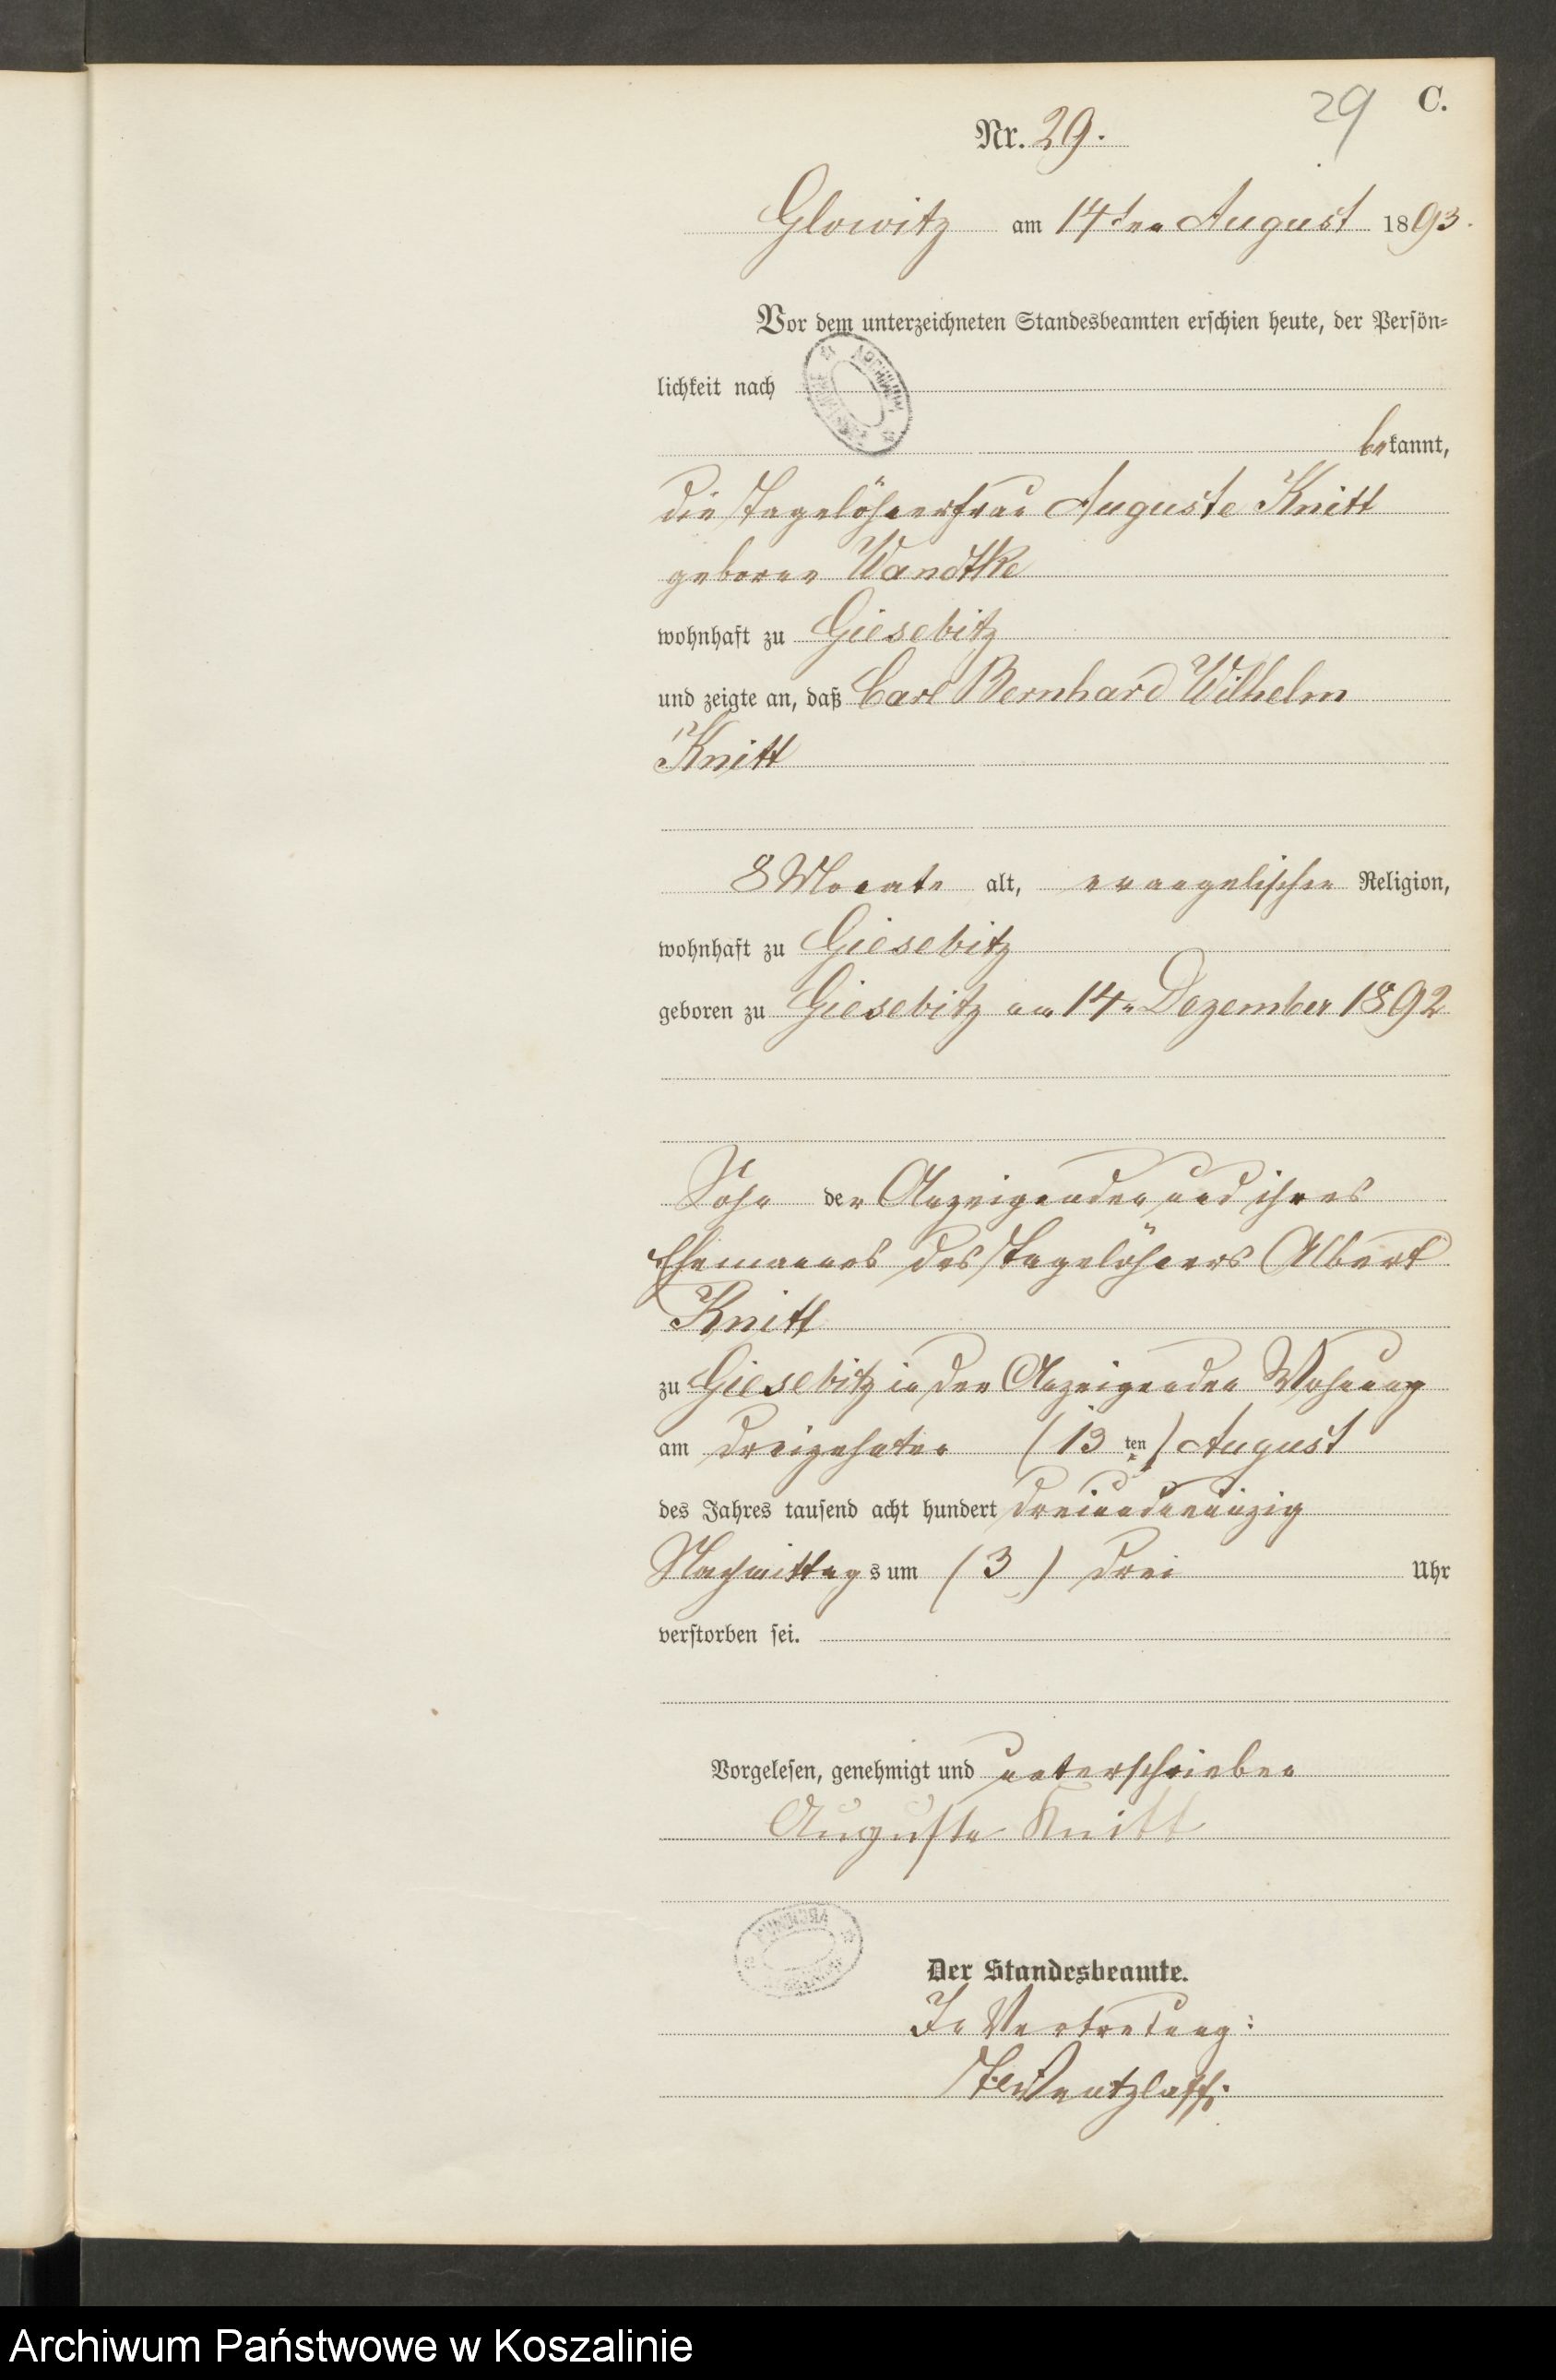 29 C.
Nr. 29.
Glowitz am 14ten August 1893.
Vor dem unterzeichneten Standesbeamten erschien heute, der Persön=
lichkeit nach
ARCHIWUM
bekannt,
die Tagelöhnerfrau Auguste Knitt
geborne Wandtke
wohnhaft zu Giesebitz
und zeigte an, daß Carl Bernhard Wilhelm
Knitt
8 Monate alt, evangelischer Religion,
wohnhaft zu Giesebitz
geboren zu Giesebitz am 14n Dezember 1892
Sohn der Anzeigenden und ihres
Ehemannes des Tagelöhners Albert
Knitt
zu Giesebitz in der Anzeigenden Wohnung
am dreizehnten (13 ten) August
des Jahres tausend acht hundert dreiundneunzig
Nachmittags um (3) drei Uhr
verstorben sei.
Vorgelesen, genehmigt und unterschrieben
Auguste Knitt
Der Standesbeamte.
In Vertretung:
Wentzlaff.
Archiwum Państwowe w Koszalinie